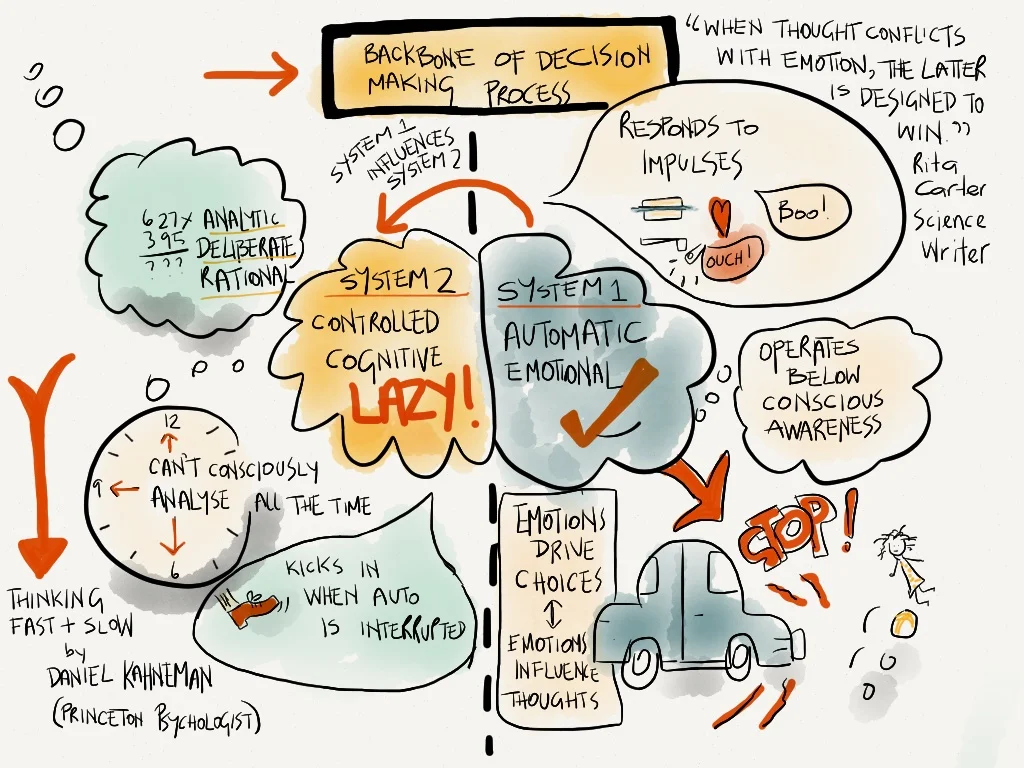 BACKBONE OF DECISION
MAKING PROCESS
"WHEN THOUGHT CONFLICTS
WITH EMOTION, THE LATTER
IS DESIGNED TO
WIN."
Rita
Carter
Science
Writer
SYSTEM 1
INFLUENCES
SYSTEM 2
RESPONDS TO
IMPULSES
BOO!
OUCH!
627x
395
???
ANALYTIC
DELIBERATE
RATIONAL
SYSTEM 2
CONTROLLED
COGNITIVE
LAZY!
SYSTEM 1
AUTOMATIC
EMOTIONAL
OPERATES
BELOW
CONSCIOUS
AWARENESS
12
9
6
CAN'T CONSCIOUSLY
ANALYSE ALL THE TIME
KICKS IN
WHEN AUTO
IS INTERRUPTED
EMOTIONS
DRIVE
CHOICES
EMOTIONS
INFLUENCE
THOUGHTS
STOP!
THINKING
FAST + SLOW
by
DANIEL KAHNEMAN
(PRINCETON PSYCHOLOGIST)